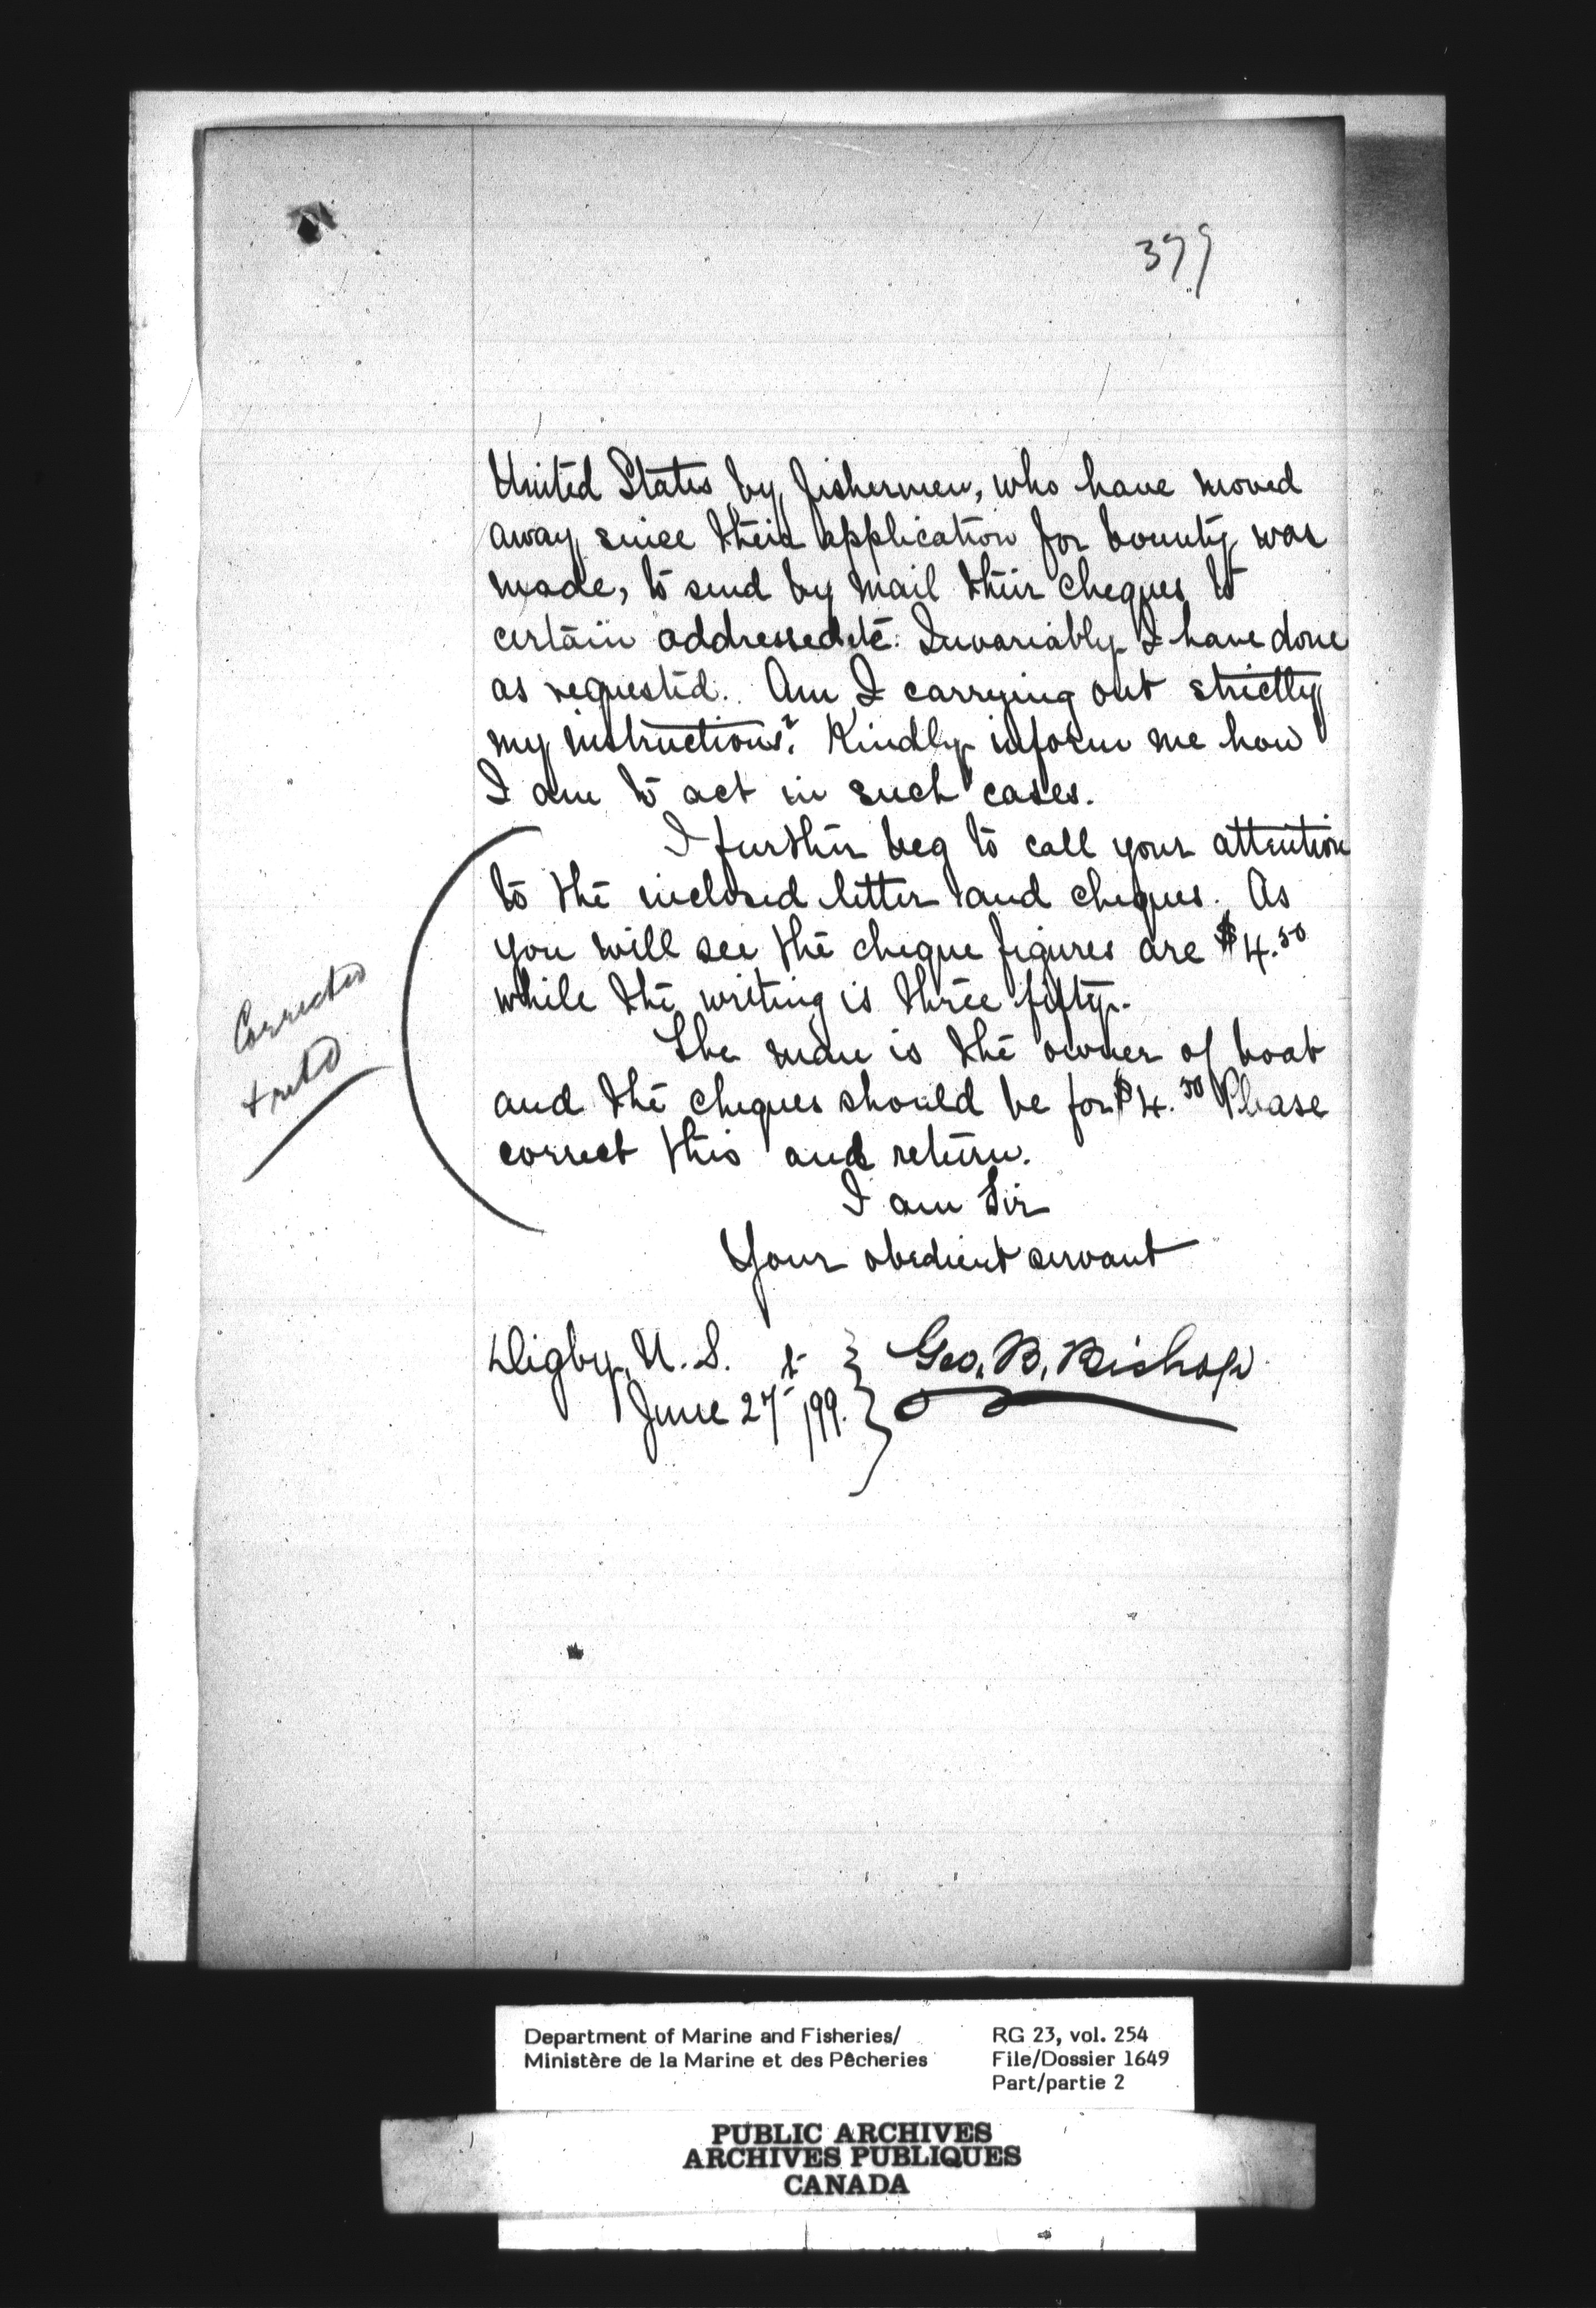 399
United States by fishermen, who have moved
away since their application for bounty was
made, to send by mail their cheques to
certain addressed etc. Invariably I have done
as requested. Am I carrying out strictly
my instructions? Kindly inform me how
I am to act in such cases.
I further beg to call your attention
to the inclosed letter and cheques. As
you will see the cheque figures are $4.50
while the writing is three fifty.
The man is the owner of boat
and the cheques should be for $4.50 Please
correct this and return.
Corrected
+ retd
I am Sir
Your obedient servant
Digby, N. S.
June 27th /99.
Geo. B. Bishop
Department of Marine and Fisheries/
Ministère de la Marine et des Pêcheries
RG 23, vol. 254
File/Dossier 1649
Part/partie 2
PUBLIC ARCHIVES
ARCHIVES PUBLIQUES
CANADA